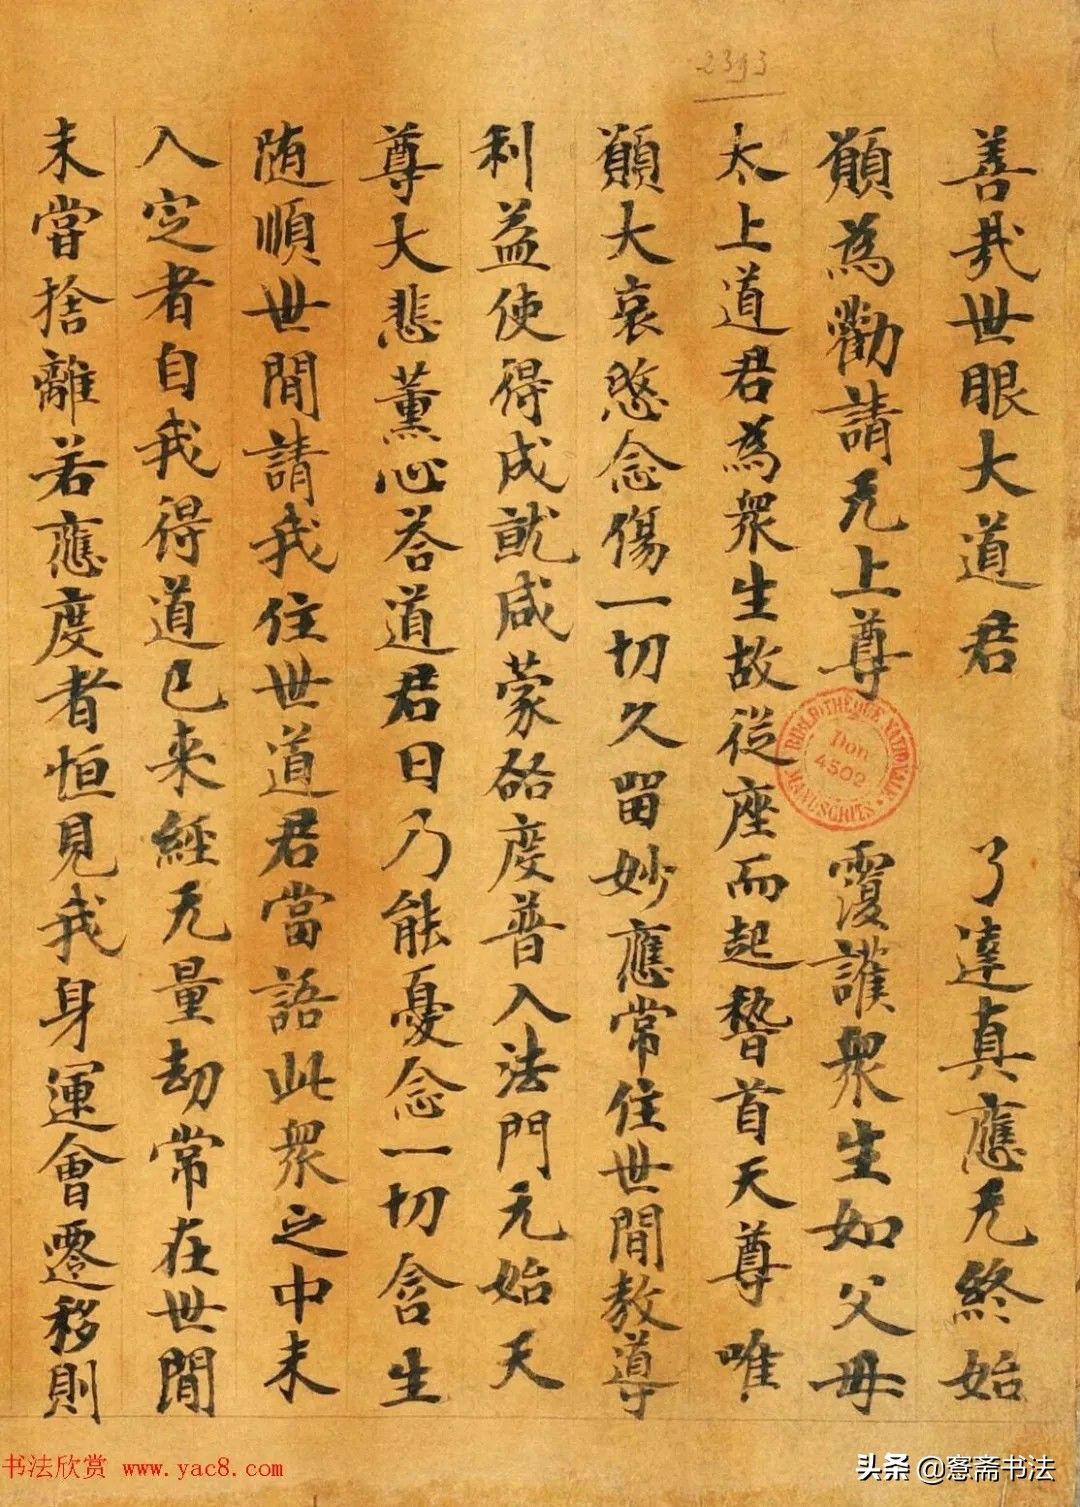 2393
善哉世眼大道君 了達真應无終始
願為勸請无上尊 覆護衆生如父母
太上道君為衆生故從座而起稽首天尊唯
願大哀愍念傷一切久留妙應常住世間教導
利益使得成就咸蒙度普入法門元始天
尊大悲薰心荅道君曰乃能憂念一切含生
随順世間請我住世道君當語此衆之中未
入定者自我得道已來經无量劫常在世間
未甞捨離若應度者恒見我身運會遷移則
BIBLIOTHÈQUE NATIONALE
Don
4502
MANUSCRITS
书法欣赏 www.yac8.com
头条 @愙斋书法